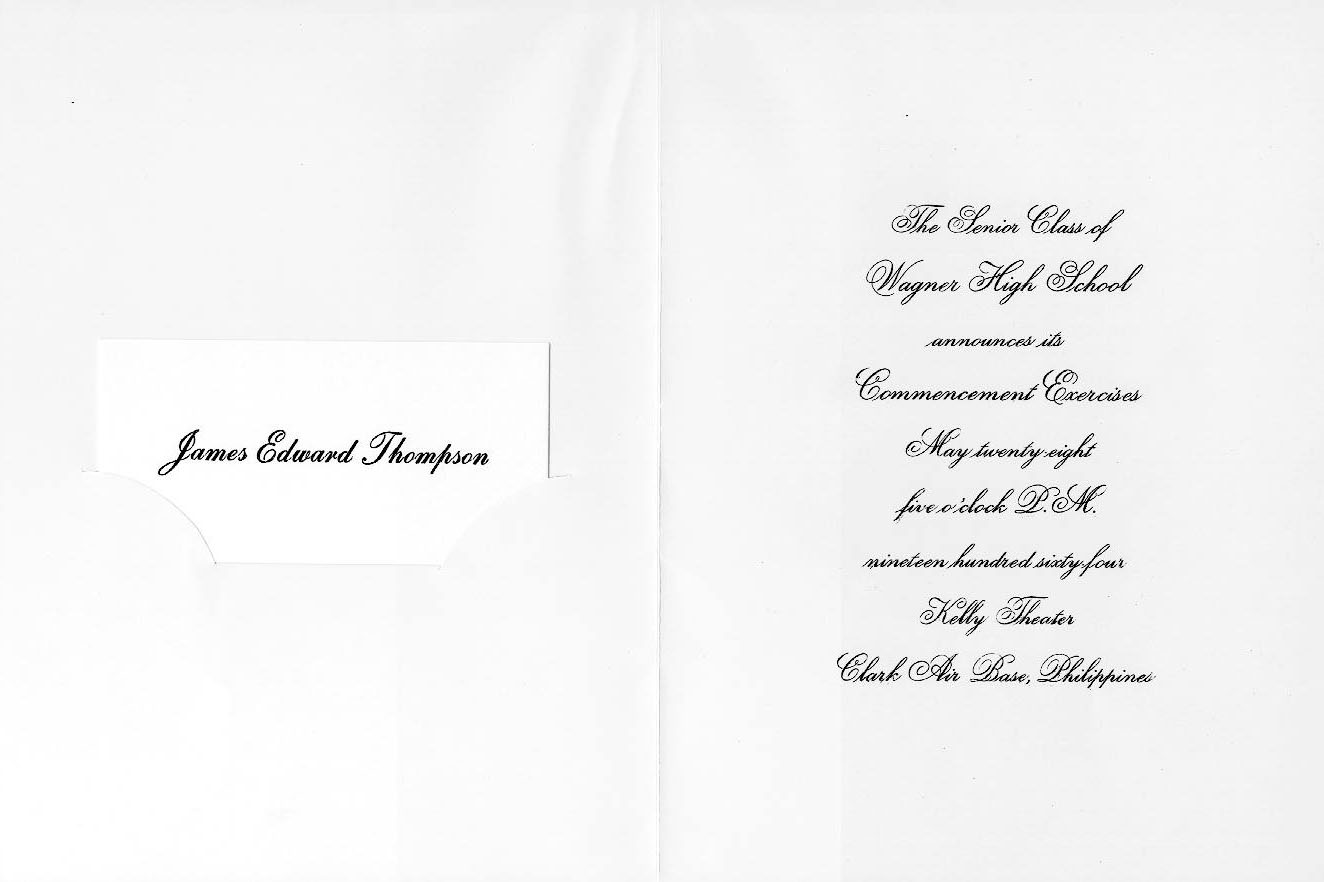 James Edward Thompson
The Senior Class of
Wagner High School
announces its
Commencement Exercises
May twenty-eight
five o'clock P.M.
nineteen hundred sixty-four
Kelly Theater
Clark Air Base, Philippines